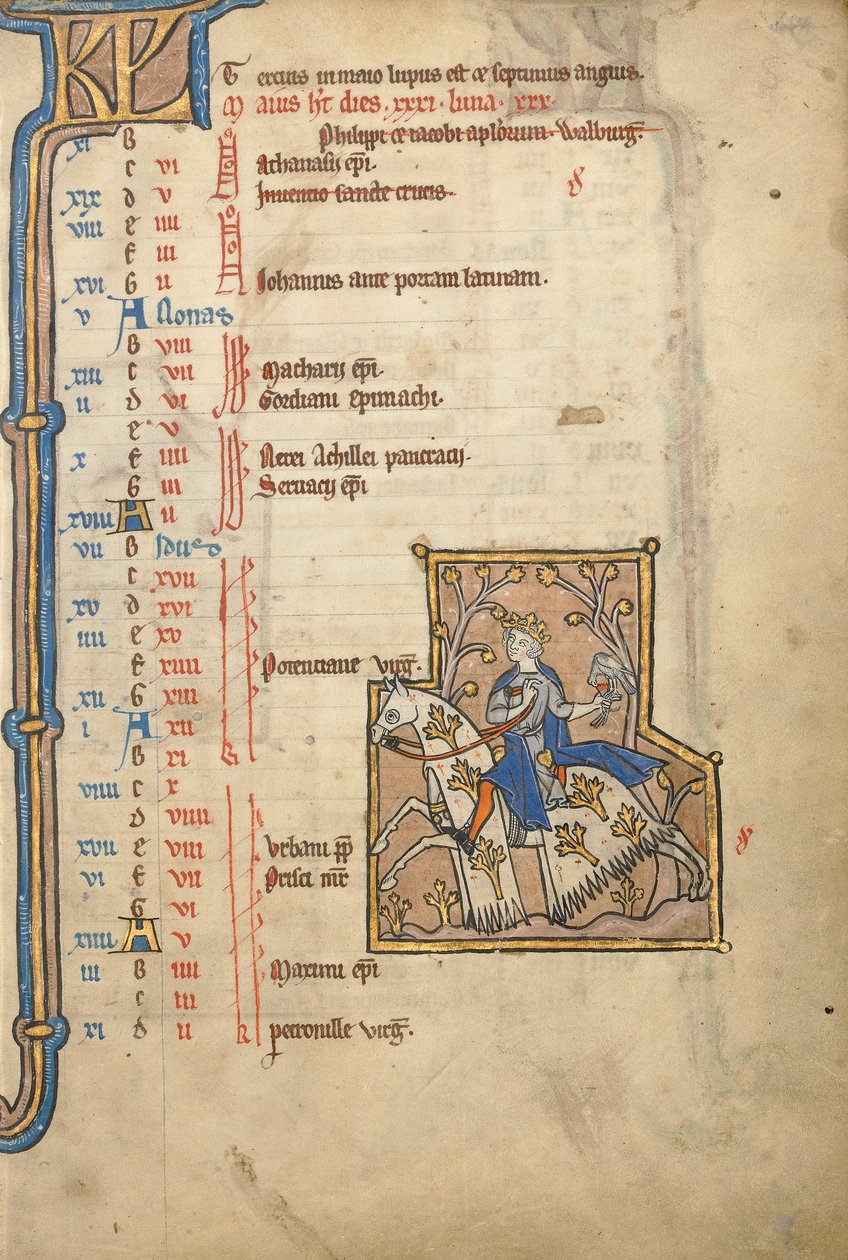 KL Tercius in maio lupus est et septimus anguis.
Maius h̄t dies. xxxi. luna. xxx.
xi B Philippi et iacobi apl̄orum. Walburg̅.
c vi Athanasij ep̄i.
xix d v Inuentio sancte crucis.
viii e iiii
f iii
xvi G ii Iohannis ante portam latinam.
v A Nonas
B viii
xiii c vii Macharij ep̄i.
ii d vi Gordiani epimachi.
e v
x f iiii Nerei Achillei pancracij.
G iii Seruacij ep̄i
xviii A ii
vii B Idus
c xvii
xv d xvi
iiii e xv
f xiiii Potentiane virg̅.
xii G xiii
i A xii
B xi
viiii c x
d viiii
xvii e viii Vrbani pp̄
vi f vii Prisci mr̄
G vi
xiiii A v
iii B iiii Maximi ep̄i
c iii
xi d ii petronille virg̅.